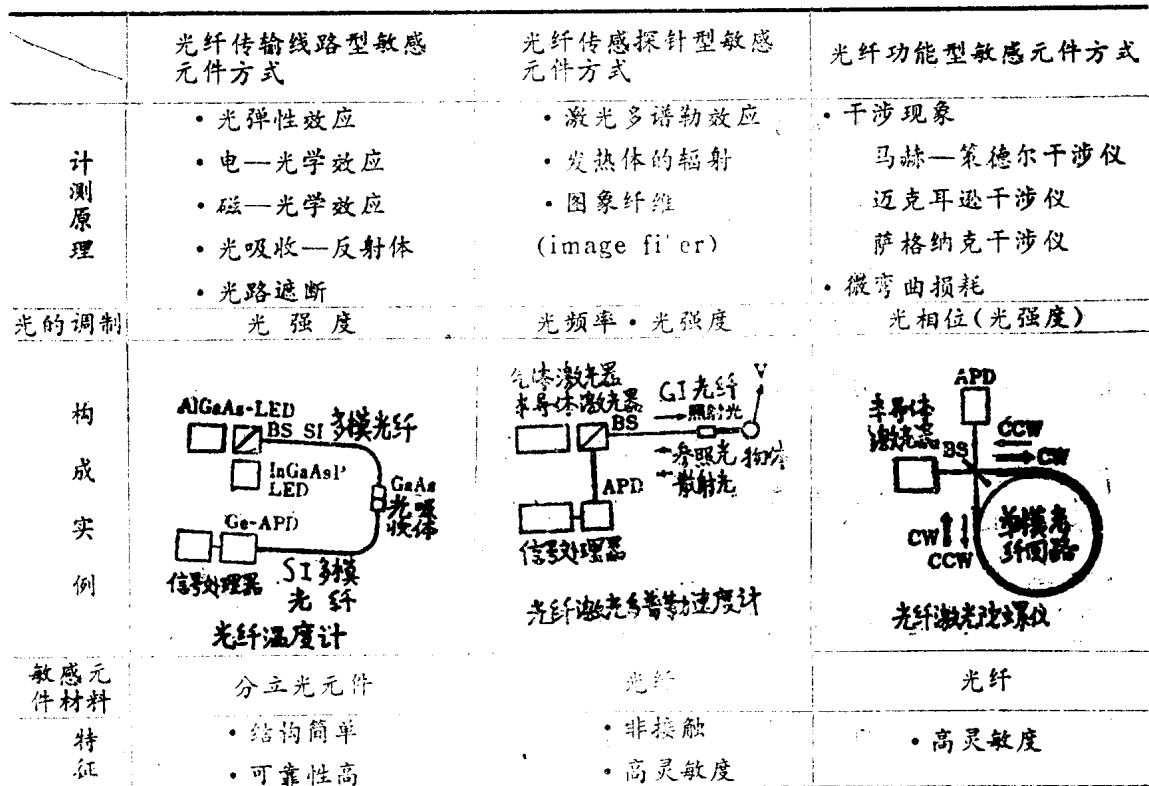 光纤传输线路型敏感
元件方式
光纤传感探针型敏感
元件方式
光纤功能型敏感元件方式
计测原理
·光弹性效应
·电—光学效应
·磁—光学效应
·光吸收—反射体
·光路遮断
·激光多谱勒效应
·发热体的辐射
·图象纤维
(image fi er)
·干涉现象
马赫—策德尔干涉仪
迈克耳逊干涉仪
萨格纳克干涉仪
·微弯曲损耗
光的调制
光强度
光频率·光强度
光相位(光强度)
构成实例
AlGaAs-LED
BS SI 多模光纤
InGaAsP
LED
GaAs
光吸
收体
Ge-APD
信号处理器
SI多模
光纤
光纤温度计
气体激光器
半导体激光器
GI光纤
V
BS
照射光
参照光
物体
散射光
APD
信号处理器
光纤激光多普勒速度计
APD
半导体
激光器
BS
CCW
CW
CW
CCW
单模光
纤回路
光纤激光陀螺仪
敏感元
件材料
分立光元件
光纤
光纤
特征
·结构简单
·可靠性高
·非接触
·高灵敏度
·高灵敏度